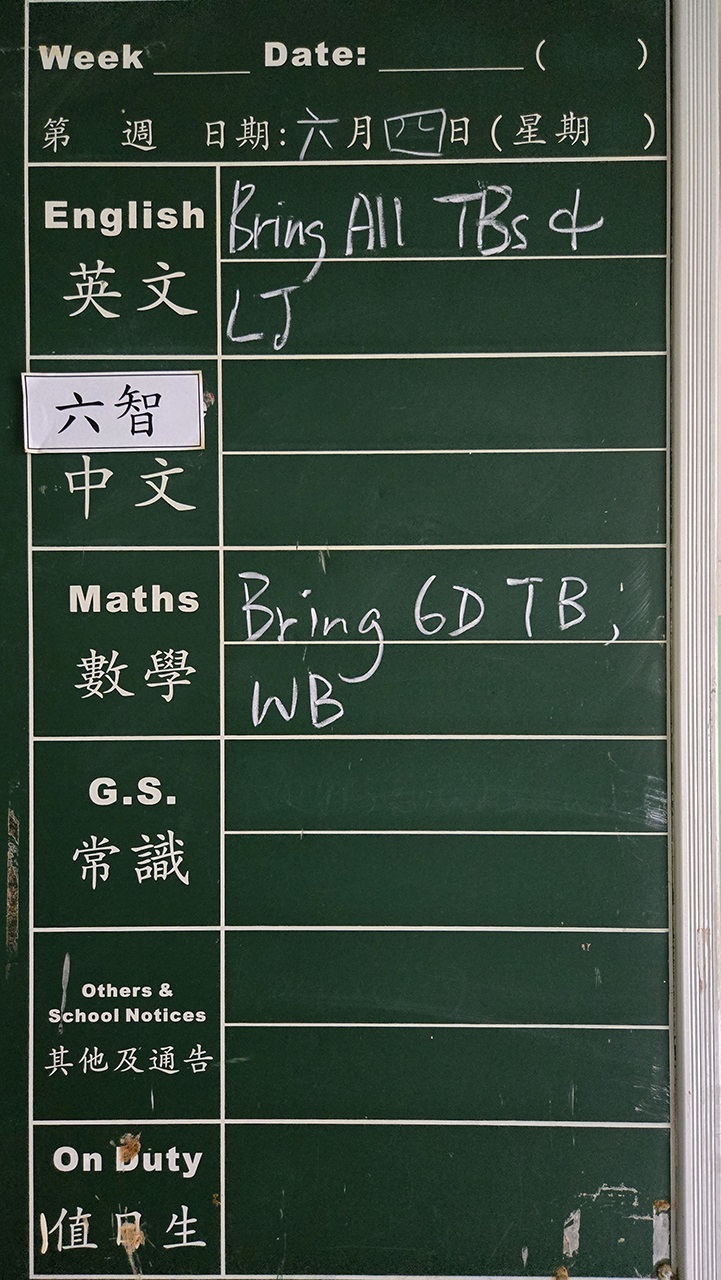 Week ______ Date: __________ (      )
第 週 日期:六月四日(星期 )
English Bring All TBs &
英文 LJ
六智
中文
Maths Bring 6D TB,
數學 WB
G.S.
常識
Others &
School Notices
其他及通告
On Duty
值日生